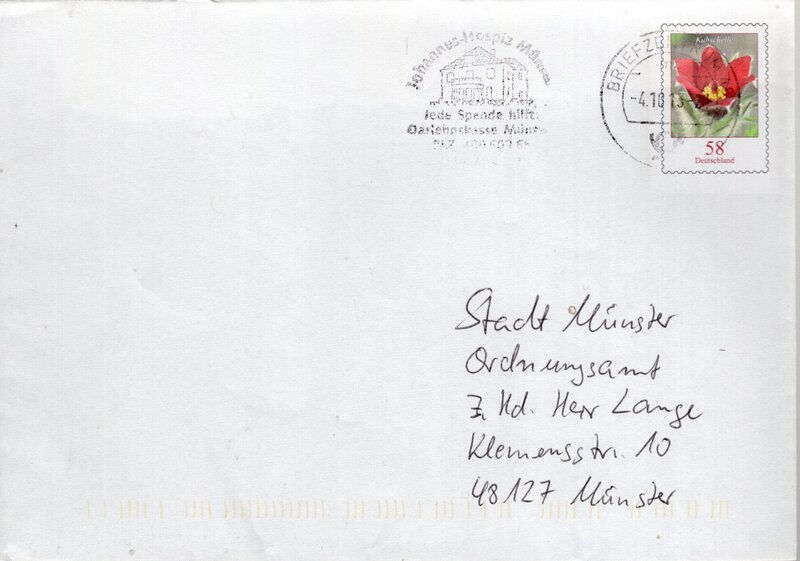 Johannes-Hospiz Münster
Jede Spende hilft:
Darlehnskasse Münster
BLZ 400 602 65
BRIEFZE
-4.10.13-2
Kuhschelle
58
Deutschland
Stadt Münster
Ordnungsamt
z. Hd. Herr Lange
Klemensstr. 10
48127 Münster